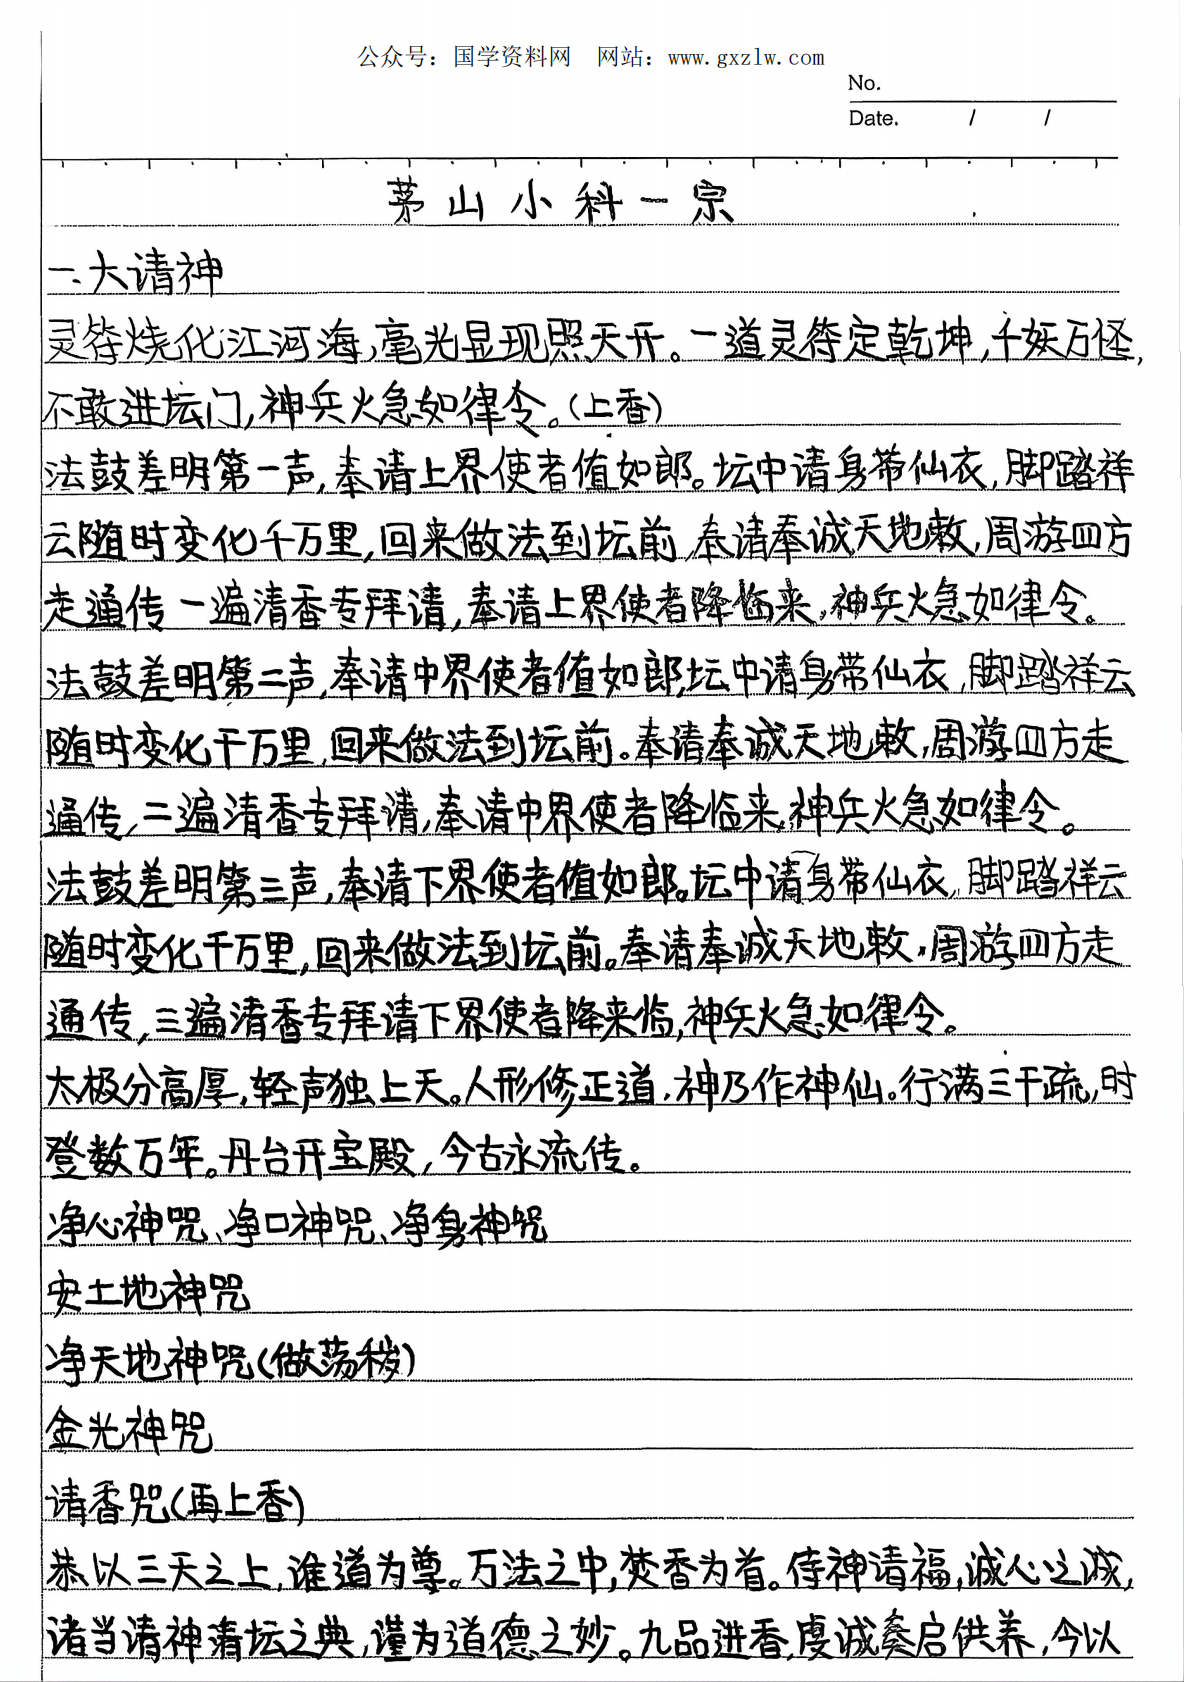 公众号：国学资料网 网站：www.gxzlw.com
No.
Date. / /
茅山小科一宗
一、大请神
灵符烧化江河海，毫光显现照天开。一道灵符定乾坤，千妖万怪，
不敢进坛门，神兵火急如律令。（上香）
法鼓差明第一声，奉请上界使者值如郎。坛中请身带仙衣，脚踏祥
云随时变化千万里，回来做法到坛前，奉请奉诚天地敕，周游四方
走通传 一遍清香专拜请，奉请上界使者降临来，神兵火急如律令。
法鼓差明第二声，奉请中界使者值如郎，坛中请身带仙衣，脚踏祥云
随时变化千万里，回来做法到坛前。奉请奉诚天地敕，周游四方走
通传，二遍清香专拜请，奉请中界使者降临来，神兵火急如律令。
法鼓差明第三声，奉请下界使者值如郎。坛中请身带仙衣，脚踏祥云
随时变化千万里，回来做法到坛前。奉请奉诚天地敕，周游四方走
通传，三遍清香专拜请下界使者降来临，神兵火急如律令。
太极分高厚，轻声独上天。人形修正道，神乃作神仙。行满三千疏，时
登数万年。丹台开宝殿，今古永流传。
净心神咒、净口神咒、净身神咒
安土地神咒
净天地神咒（做荡秽）
金光神咒
请香咒（再上香）
恭以三天之上，谁道为尊。万法之中，焚香为首。侍神请福，诚心之诚，
诸当请神清坛之典，谨为道德之妙。九品进香，虔诚奏启供养，今以